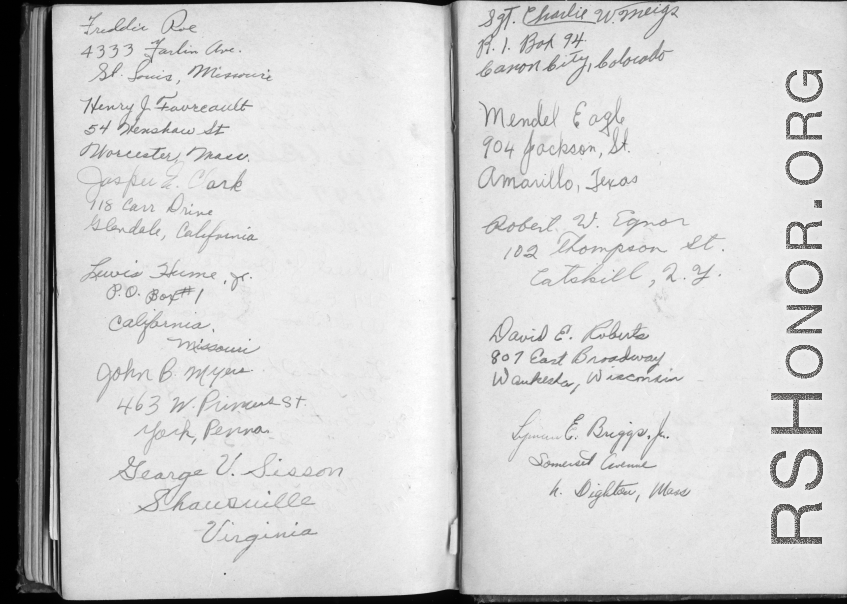 Freddie Roe
4333 Farlin Ave.
St. Louis, Missouri
Henry J. Favreault
54 Henshaw St
Worcester, Mass.
Jasper L. Clark
118 Carr Drive
Glendale, California
Lewis Hume, Jr.
P.O. Box #1
California,
Missouri
John B. Myers
463 W. Princess St.
York, Penna.
George V. Sisson
Shawsville
Virginia
Sgt. Charlie W. Meigs
R. 1. Box 94
Canon City, Colorado
Mendel Eagle
904 Jackson, St.
Amarillo, Texas
Robert W. Egnor
102 Thompson St.
Catskill, N.Y.
David E. Roberts
807 East Broadway
Waukesha, Wisconsin
Lyman E. Briggs, Jr.
Somerset Avenue
N. Dighton, Mass
RSHONOR.ORG